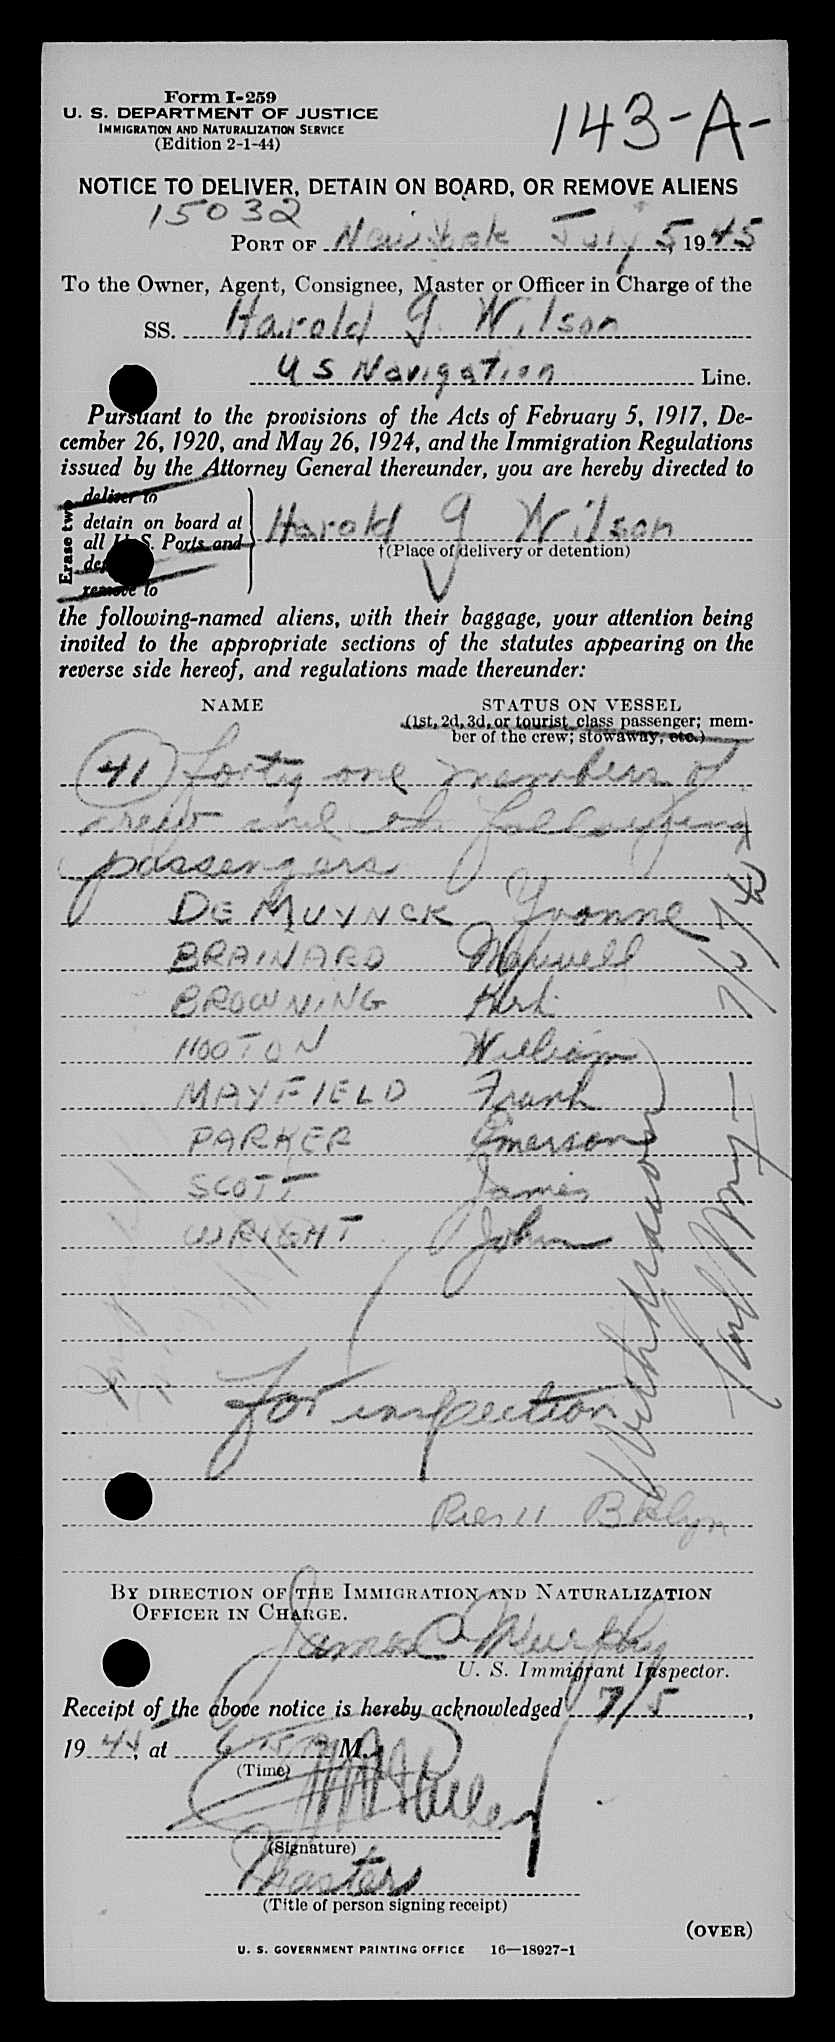 Form I-259
U. S. DEPARTMENT OF JUSTICE
IMMIGRATION AND NATURALIZATION SERVICE
(Edition 2-1-44)
143-A-
NOTICE TO DELIVER, DETAIN ON BOARD, OR REMOVE ALIENS
15032
PORT OF New York July 5, 1945
To the Owner, Agent, Consignee, Master or Officer in Charge of the
SS. Harold G. Wilson
U S Navigation Line.
Pursuant to the provisions of the Acts of February 5, 1917, De-
cember 26, 1920, and May 26, 1924, and the Immigration Regulations
issued by the Attorney General thereunder, you are hereby directed to
Erase two
deliver to
detain on board at
all U. S. Ports and
remove to
Harold G Wilson
†(Place of delivery or detention)
the following-named aliens, with their baggage, your attention being
invited to the appropriate sections of the statutes appearing on the
reverse side hereof, and regulations made thereunder:
NAME STATUS ON VESSEL
(1st, 2d, 3d, or tourist class passenger; mem-
ber of the crew; stowaway, etc.)
(41) forty one members of
crew and following
passengers
DE MUYNCK Yvonne
BRAINARD Maxwell
BROWNING
HOOTON William
MAYFIELD Frank
PARKER Emerson
SCOTT James
WRIGHT John
for inspection
Pier 11 Bklyn
BY DIRECTION OF THE IMMIGRATION AND NATURALIZATION
OFFICER IN CHARGE.
James C Murphy
U. S. Immigrant Inspector.
Receipt of the above notice is hereby acknowledged 7/5,
19 45, at M.
(Time)
(Signature)
Master
(Title of person signing receipt)
(OVER)
U. S. GOVERNMENT PRINTING OFFICE 16—18927-1